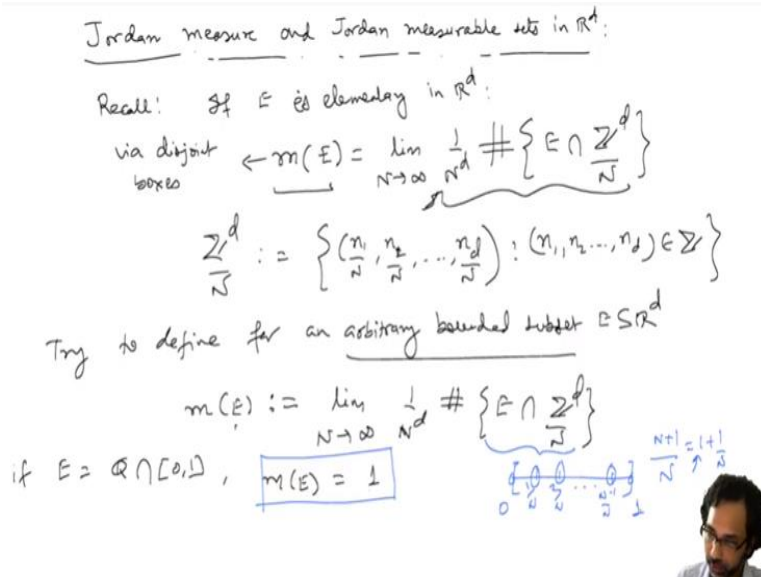 Jordan measure and Jordan measurable sets in ℝ^d:
Recall: If E is elementary in ℝ^d:
via disjoint boxes ← m(E) = lim_{N→∞} 1/N^d # {E ∩ ℤ^d/N}
ℤ^d/N := {(n_1/N, n_2/N, ..., n_d/N) : (n_1, n_2, ..., n_d) ∈ ℤ}
Try to define for an arbitrary bounded subset E ⊆ ℝ^d
m(E) := lim_{N→∞} 1/N^d # {E ∩ ℤ^d/N}
if E = ℚ ∩ [0,1], m(E) = 1
0 1/N 2/N ... N-1/N 1
N+1/N = 1 + 1/N